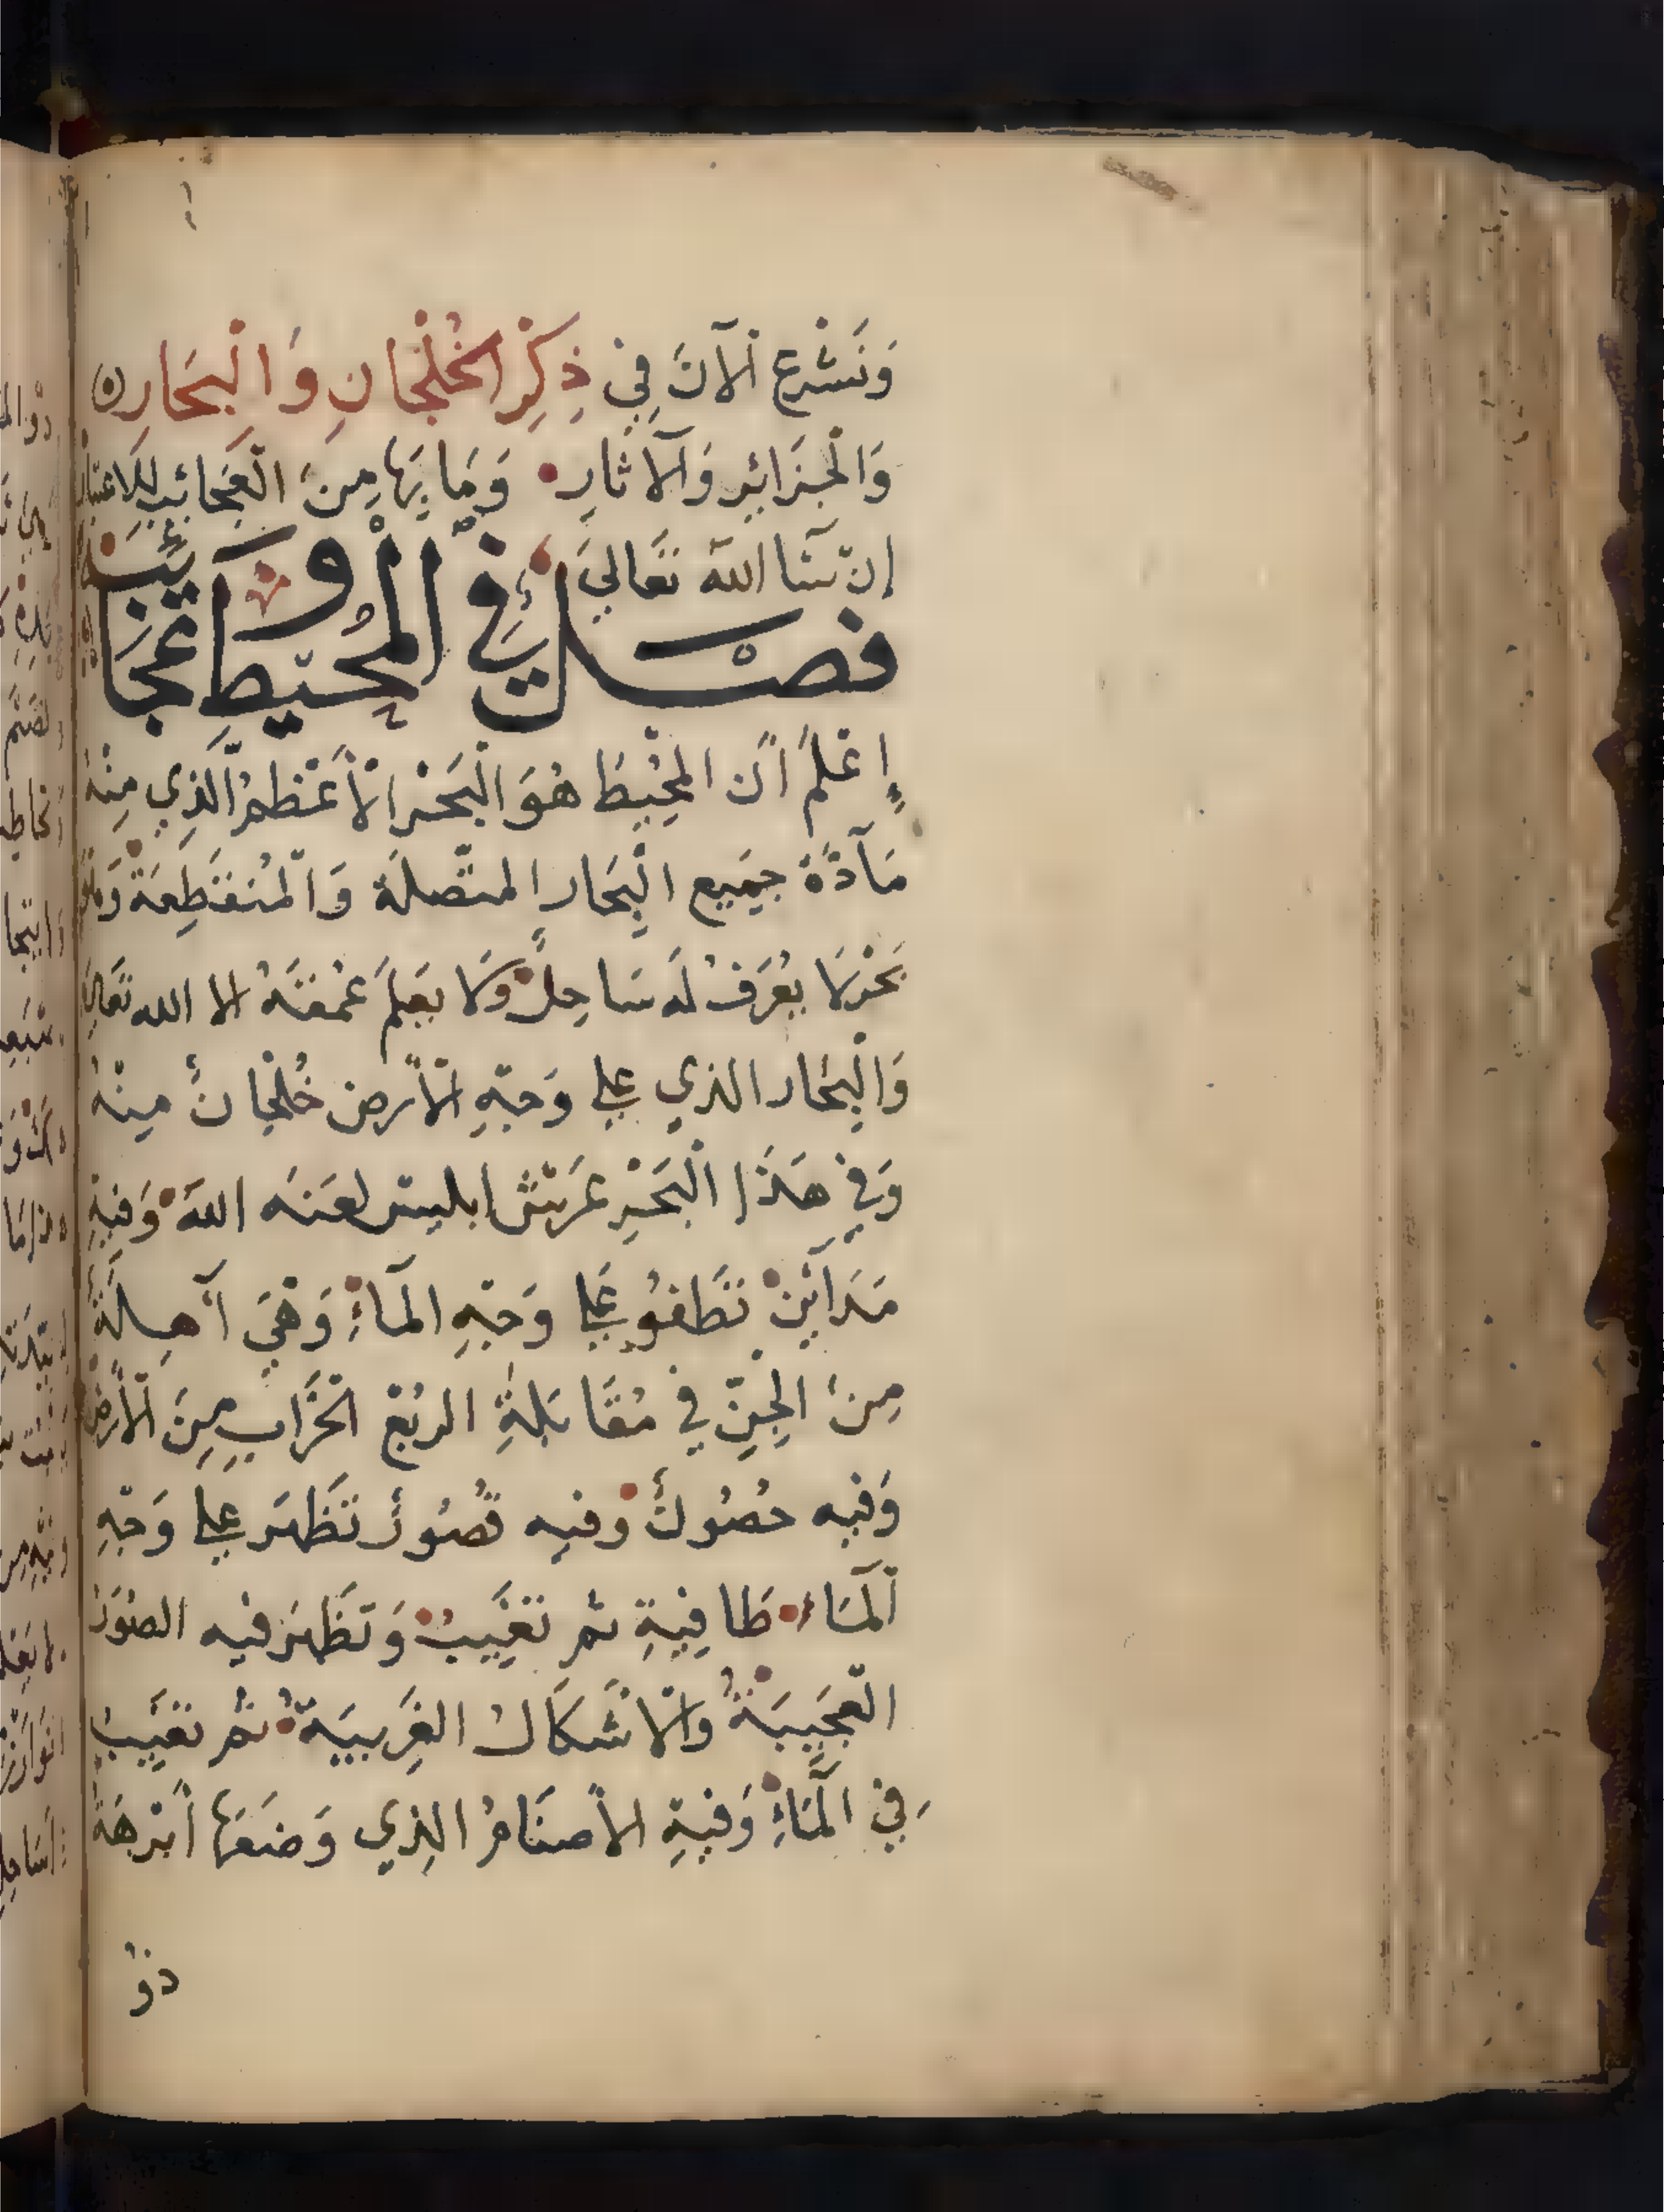 وَنَشْرع الْآنَ فِي ذِكْرِ الْخُلْجَانِ وَالْبِحَارِ
وَالْجَزَائِرِ وَالْآثَارِ وَمَا بِهَا مِنَ الْعَجَائِبِ لِلاعْتِبَارِ
إن شَا اللَّه تَعَالَى
فَصْلٌ فِي الْمُحِيطِ وَعَجَائِبِهِ
إِعْلَمْ أَن الْمُحِيطَ هُوَ الْبَحْرُ الْأَعْظَمُ الَّذِي مِنْهُ
مَآدَّةُ جَمِيعِ الْبِحَارِ المتّصلَة وَالْمُنقَطِعَة وَهُوَ
بَحْرٌ لَا يُعْرَفُ لَه سَاحِلٌ وَلَا يَعْلَمُ عُمْقَهُ الا الله تَعَالَى
وَالْبِحَار الذي على وَجْهِ الْأَرض خُلْجَانٌ مِنْهُ
وَفِي هَذَا الْبَحْرِ عَرْشُ ابليس لعَنَه اللَّهُ وَفِيهِ
مَدَآئِنُ تَطْفُو عَلَى وَجْهِ الْمَآءِ وَهِيَ آهِلَةٌ
مِنَ الْجِنِّ فِي مُقَابَلَةِ الربْعِ الْخَرَابِ مِنَ الْأَرْضِ
وَفيه حُصُونٌ وَفيه قُصُورٌ تَظْهَر على وَجْهِ
الْمَآءِ طَافِيةٍ ثم تَغِيبُ وَتَظْهَرُ فيه الصُوَرُ
الْعَجِيبَةُ وَالْأشْكَالُ الغَرِيبَةُ ثم تَغِيبُ
فِي الْمَآءِ وَفِيهِ الأصنَامُ الذِي وَضَعَهَا أَبْرَهَةُ
ذُو